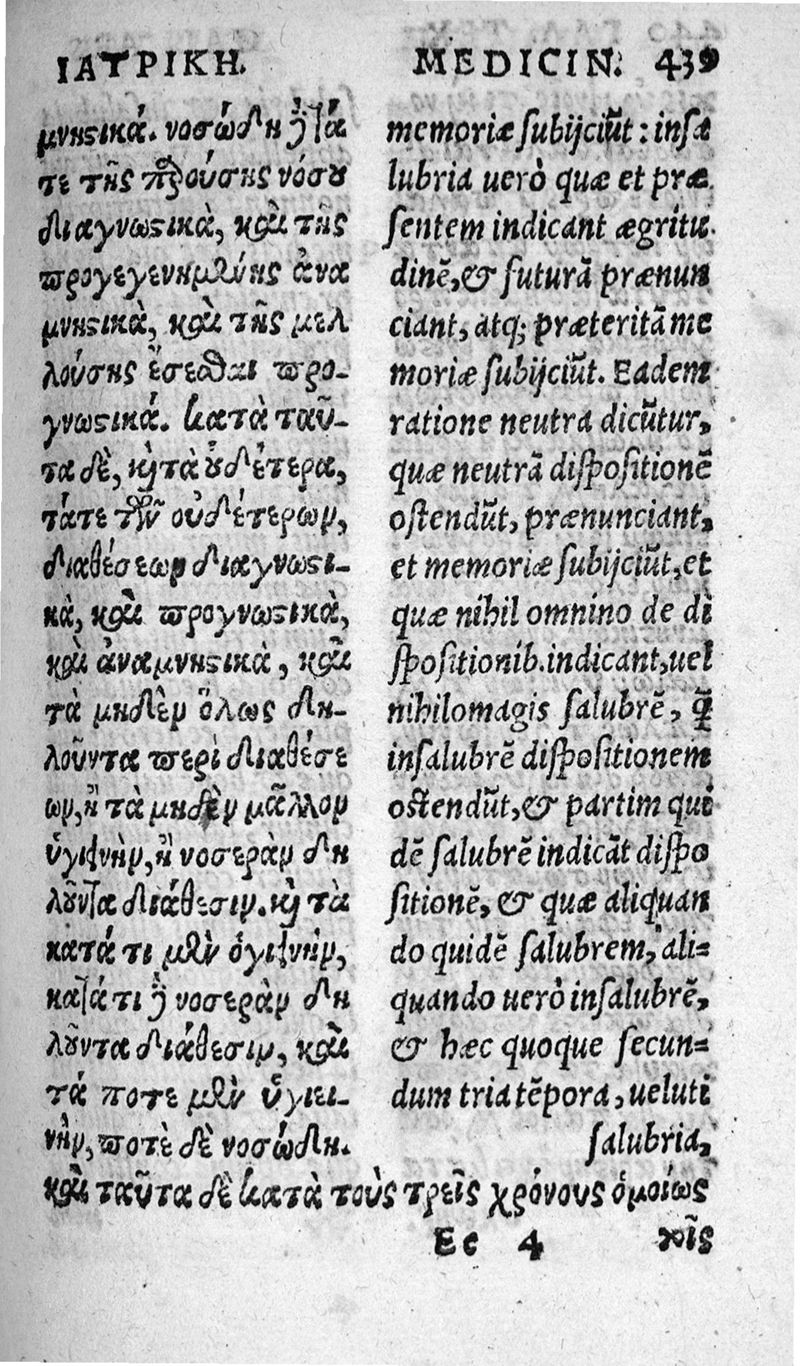 ΙΑΤΡΙΚΗ.
μνηστικά. νοσώδη δὲ τά
τε τῆς παρούσης νόσου
διαγνωστικὰ, καὶ τῆς
προγεγενημένης ἀνα
μνηστικὰ, καὶ τῆς μελ
λούσης ἔσεσθαι προ-
γνωστικά. κατὰ ταῦ-
τα δὲ, καὶ τὰ οὐδέτερα,
τάτε τῶν οὐδέτερων,
διαθέσεων διαγνωστι-
κὰ, καὶ προγνωστικὰ,
καὶ ἀναμνηστικὰ, καὶ
τὰ μηδὲν ὅλως δη-
λοῦντα περὶ διαθέσε
ων, ἢ τὰ μηδὲν μᾶλλον
ὑγιεινὴν, ἢ νοσερὰν δη
λοῦντα διάθεσιν. καὶ τὰ
κατά τι μὲν ὑγιεινὴν,
κατά τι δὲ νοσερὰν δη
λοῦντα διάθεσιν, καὶ
τά ποτε μὲν ὑγιει-
νὴν, ποτὲ δὲ νοσώδη.
καὶ ταῦτα δὲ κατὰ τοὺς τρεῖς χρόνους ὁμοίως
MEDICIN. 439
memoriæ subijciũt: insa
lubria uerò quæ et præ
sentem indicant ægritu
dinẽ, & futurã prænun
ciant, atq; præteritã me
moriæ subijciũt. Eadem
ratione neutra dicũtur,
quæ neutrã dispositionẽ
ostendũt, prænunciant,
et memoriæ subijciũt, et
quæ nihil omnino de di
spositionib. indicant, uel
nihilomagis salubrẽ, q̃
insalubrẽ dispositionem
ostendũt, & partim qui
dẽ salubrẽ indicãt dispo
sitionẽ, & quæ aliquan
do quidẽ salubrem, ali=
quando uerò insalubrẽ,
& hæc quoque secun=
dum tria tẽpora, ueluti
salubria,
Ee 4 τοῖς